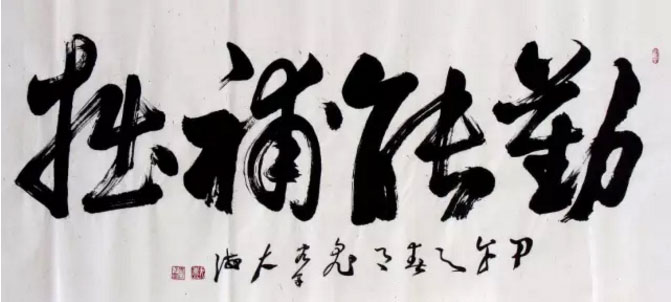 勤能補拙
甲午之春月大海